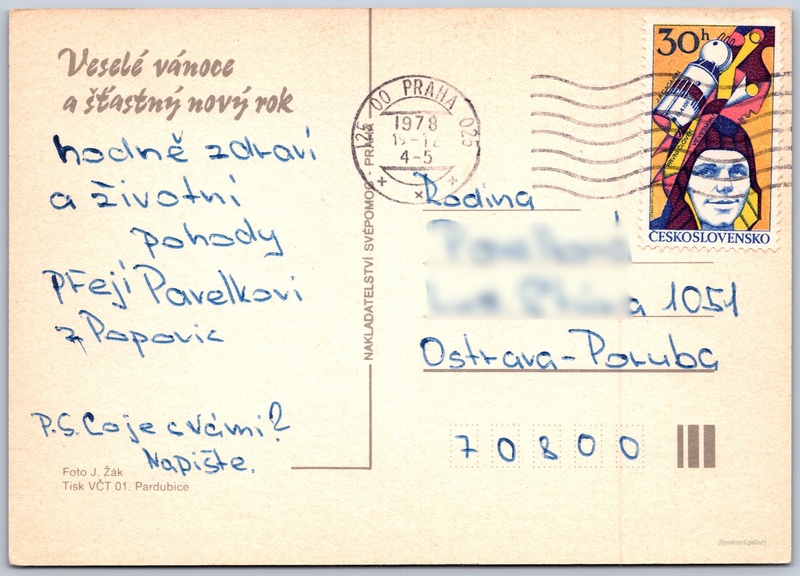 Veselé vánoce
a šťastný nový rok
hodně zdraví
a životní
pohody
přejí Pavelkovi
z Popovic
P.S. Co je s Vámi?
Napište.
Foto J. Žák
Tisk VČT 01. Pardubice
NAKLADATELSTVÍ SVÉPOMOC - PRAHA
00 PRAHA 025
1978
19-12
4-5
30h
INTERKOSMOS
ČESKOSLOVENSKO
Rodina
1051
Ostrava-Poruba
70800